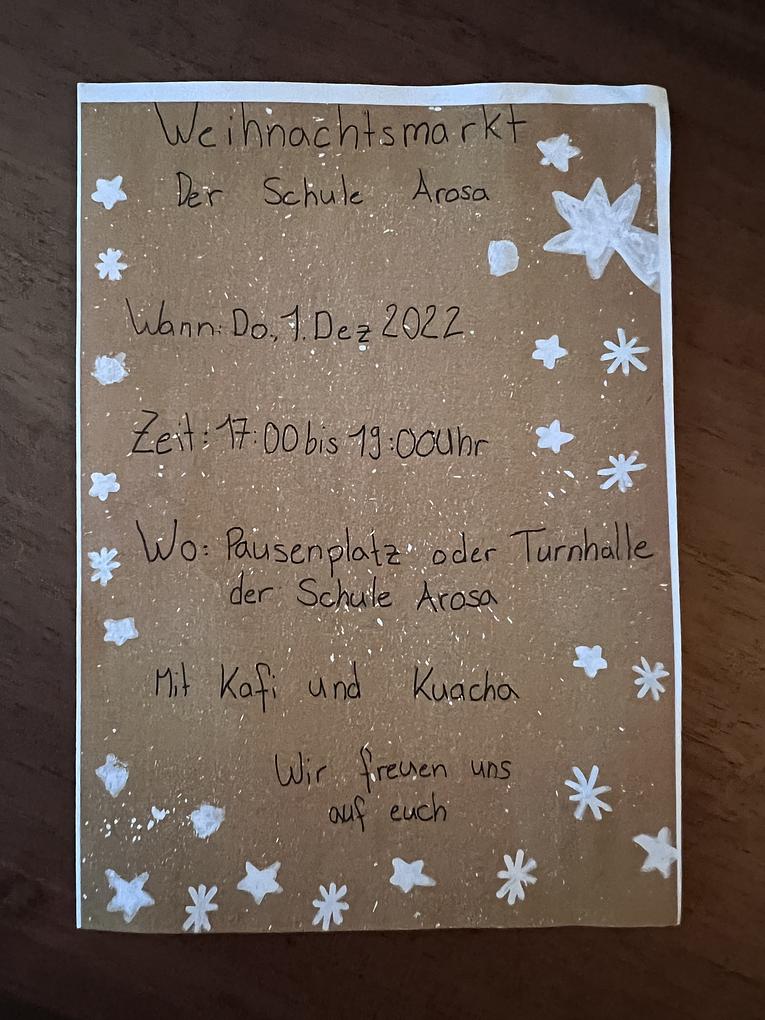 Weihnachtsmarkt
Der Schule Arosa
Wann: Do., 1. Dez 2022
Zeit: 17:00 bis 19:00 Uhr
Wo: Pausenplatz oder Turnhalle
der Schule Arosa
Mit Kafi und Kuacha
Wir freuen uns
auf euch